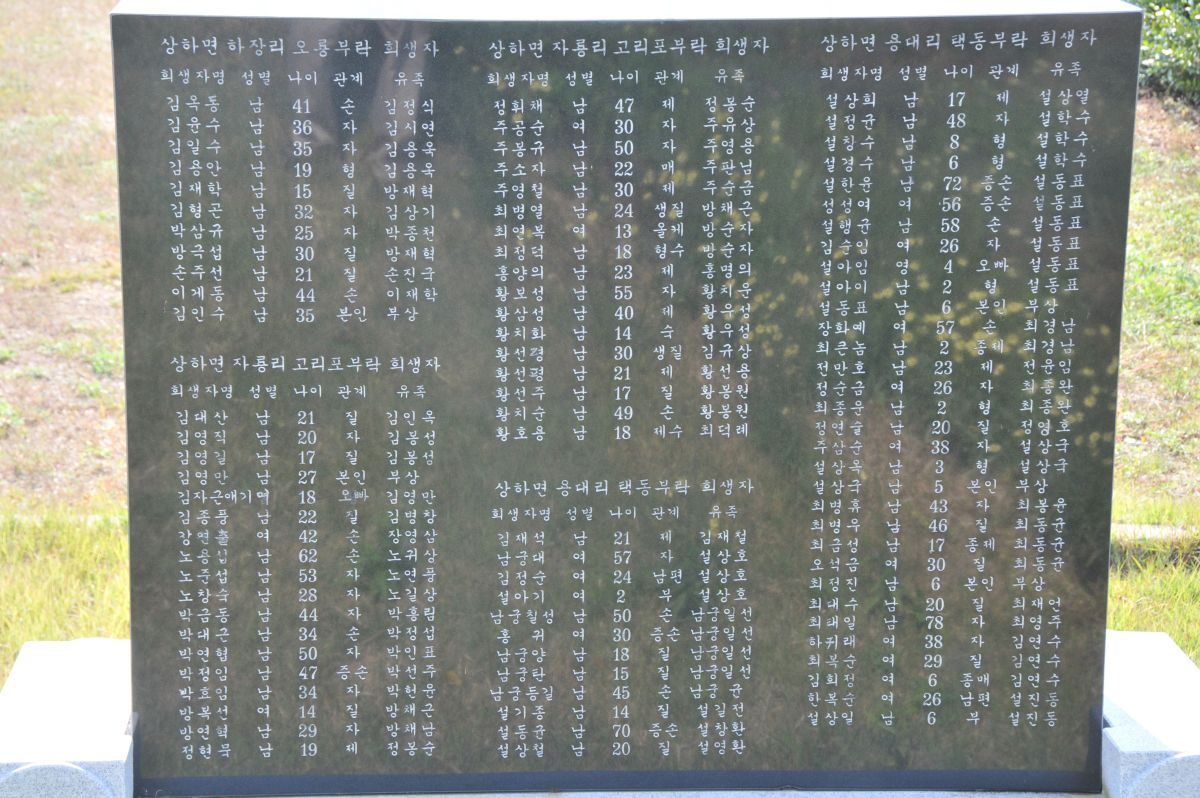 상하면 하장리 오룡부락 희생자
희생자명 성별 나이 관계 유족
김옥동 남 41 손 김정식
김윤수 남 36 자 김시연
김일수 남 35 자 김용옥
김용안 남 19 형 김용옥
김재학 남 15 질 방재혁
김형곤 남 32 자 김상기
박삼규 남 25 자 박종천
방극섭 남 30 질 방재혁
손주선 남 21 질 손진국
이게동 남 44 손 이재학
김인수 남 35 본인 부상
상하면 자룡리 고리포부락 희생자
희생자명 성별 나이 관계 유족
김대산 남 21 질 김인옥
김영직 남 20 자 김봉성
김영길 남 17 질 김봉섬
김영만 남 27 본인 부상
김자근애기 여 18 오빠 김영만
김종풍 남 22 질 김병창
강연출 여 42 손 장영상
노용섭 남 62 손 노귀상
노준섭 남 53 자 노연풍
노창숙 남 28 자 노길상
박금동 남 44 자 박흥림
박대근 남 34 손 박정섭
박연협 남 50 자 박인표
박정임 남 47 증손 박선주
박효임 남 34 자 박헌윤
방복선 여 14 질 방채근
방연혁 남 29 자 방채남
정현묵 남 19 제 정봉순
상하면 자룡리 고리포부락 희생자
희생자명 성별 나이 관계 유족
정휘채 남 47 제 정봉순
주공순 여 30 자 주유상
주봉규 남 50 자 주영용
주소자 남 22 매 주판님
주영철 남 30 제 주순금
최병열 남 24 생질 방채근
최열복 여 13 올케 방순자
최정덕 남 18 형수 방순자
홍양의 남 23 제 홍명의
황보성 남 55 자 황치운
황삼성 남 40 제 황우성
황치화 남 14 숙 황우성
황선평 남 30 생질 김규상
황선평 남 21 제 황선용
황선주 남 17 질 황봉원
황치순 남 49 손 황봉원
황호용 남 18 제수 최덕례
상하면 용대리 택동부락 희생자
희생자명 성별 나이 관계 유족
김재석 남 21 제 김재철
남궁대 여 57 자 설상호
김정순 여 24 남편 설상호
설아기 여 2 부 설상호
남궁칠성 남 50 손 남궁일선
홍귀 여 30 증손 남궁일선
남궁양 남 18 질 남궁일선
남궁탄 남 15 질 남궁일선
남궁등길 남 45 손 남궁균
설기종 남 14 질 설길전
설동균 남 70 증손 설창환
설상철 남 20 질 설영환
상하면 용대리 택동부락 희생자
희생자명 성별 나이 관계 유족
설상희 남 17 제 설상열
설정균 남 48 자 설학수
설창수 남 8 형 설학수
설경수 남 6 형 설학수
설한윤 남 72 증손 설동표
성성여 여 56 증손 설동표
설행균 남 58 손 설동표
김순임 여 26 자 설동표
설아임 영 4 오빠 설동표
설아이 남 2 형 설동표
설동표 남 6 본인 부상
장화예 여 57 손 최경남
최큰놈 남 2 종제 최경남
전만호 남 23 제 전윤임
정순금 여 26 자 최종완
최종운 남 2 형 최종완
정연술 남 20 질 정영호
주삼순 여 38 자 설상국
설상옥 남 3 형 설상국
설상국 남 5 본인 부상
최병휴 남 43 자 최봉윤
최병우 남 46 질 최동균
최금성 남 17 종제 최동균
오석금 여 30 자 최동균
최정진 남 6 본인 부상
최대수 남 20 질 최재언
최대일 남 78 자 최연주
하귀래 여 38 자 김연수
최복순 여 29 질 김연수
김희정 여 6 종매 김연수
한복순 여 26 남편 설진동
설상일 남 6 부 설진동